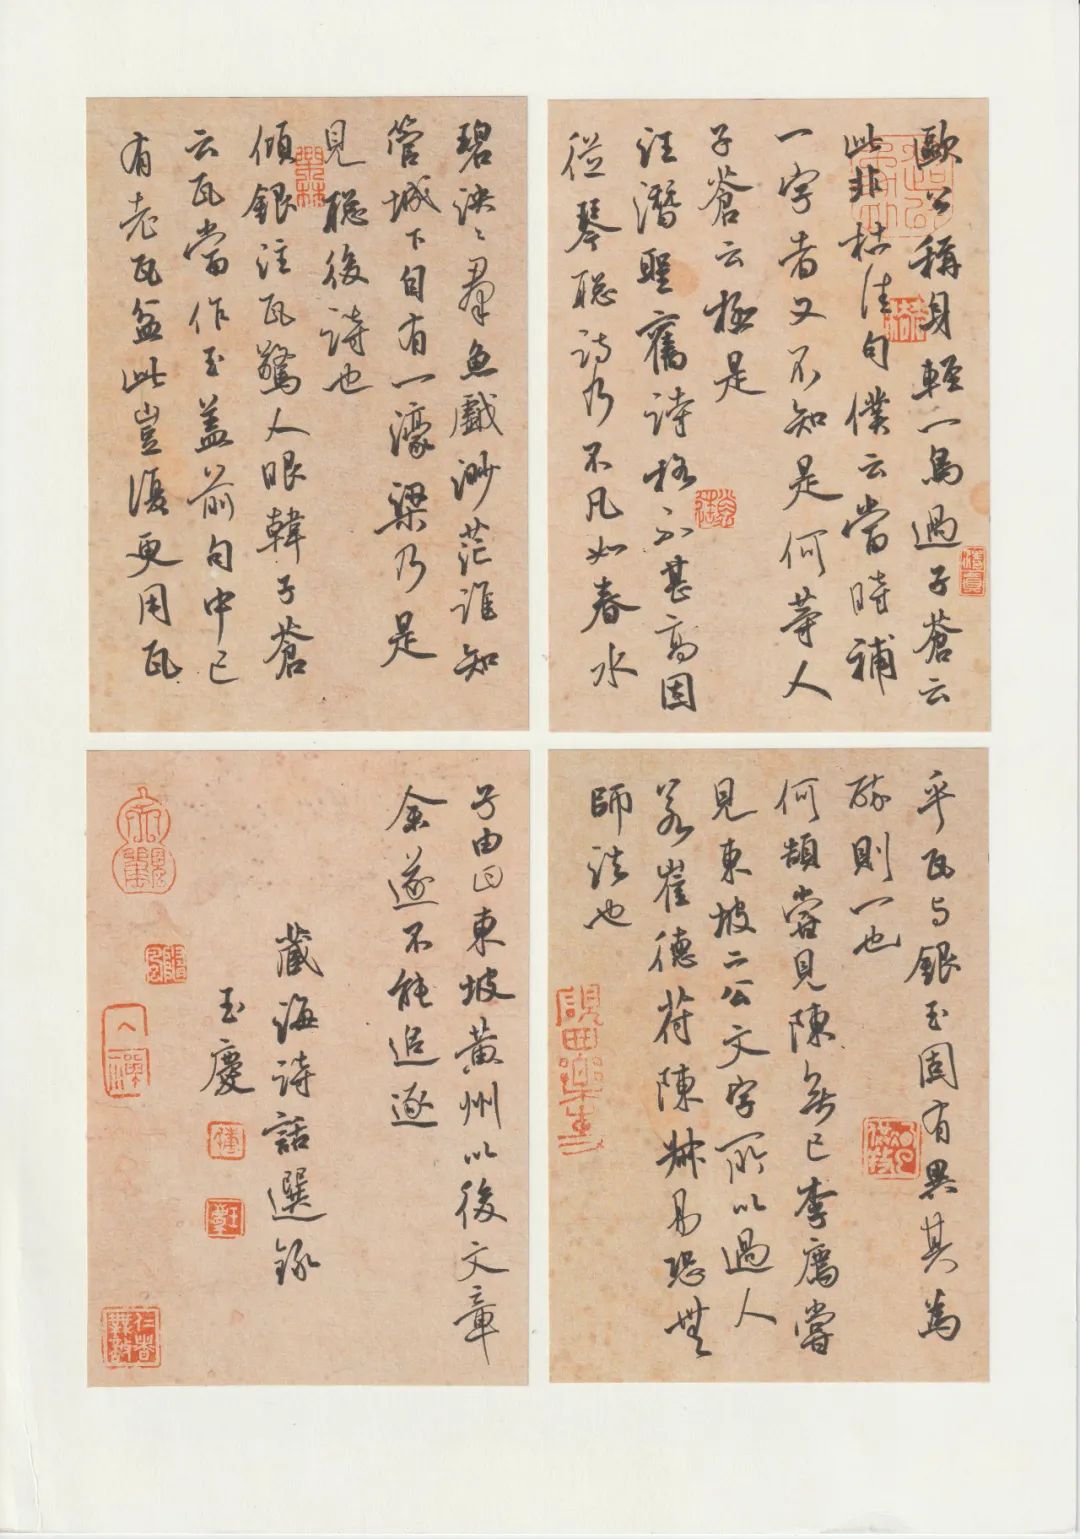 歐公稱身輕一鳥過子蒼云
此非枯佳句僕云當時補
一字者又不知是何等人
子蒼云極是
汪潛聖舊詩格不甚高因
從琴聰詩乃不凡如春水
碧泱〻羣魚戲渺茫誰知
管城下自有一濠梁乃是
見聰後詩也
傾銀注瓦驚人眼韓子蒼
云瓦當作玉蓋前句中已
有老瓦盆此豈復更用瓦
乎瓦与銀玉固有異其為
醉則一也
何頡嘗見陳無已李廌嘗
見東坡二公文字所以過人
若崔德符陳叔易恐無
師法也
子由曰東坡黃州以後文章
余遂不能追逐
藏海詩話選錄
玉慶